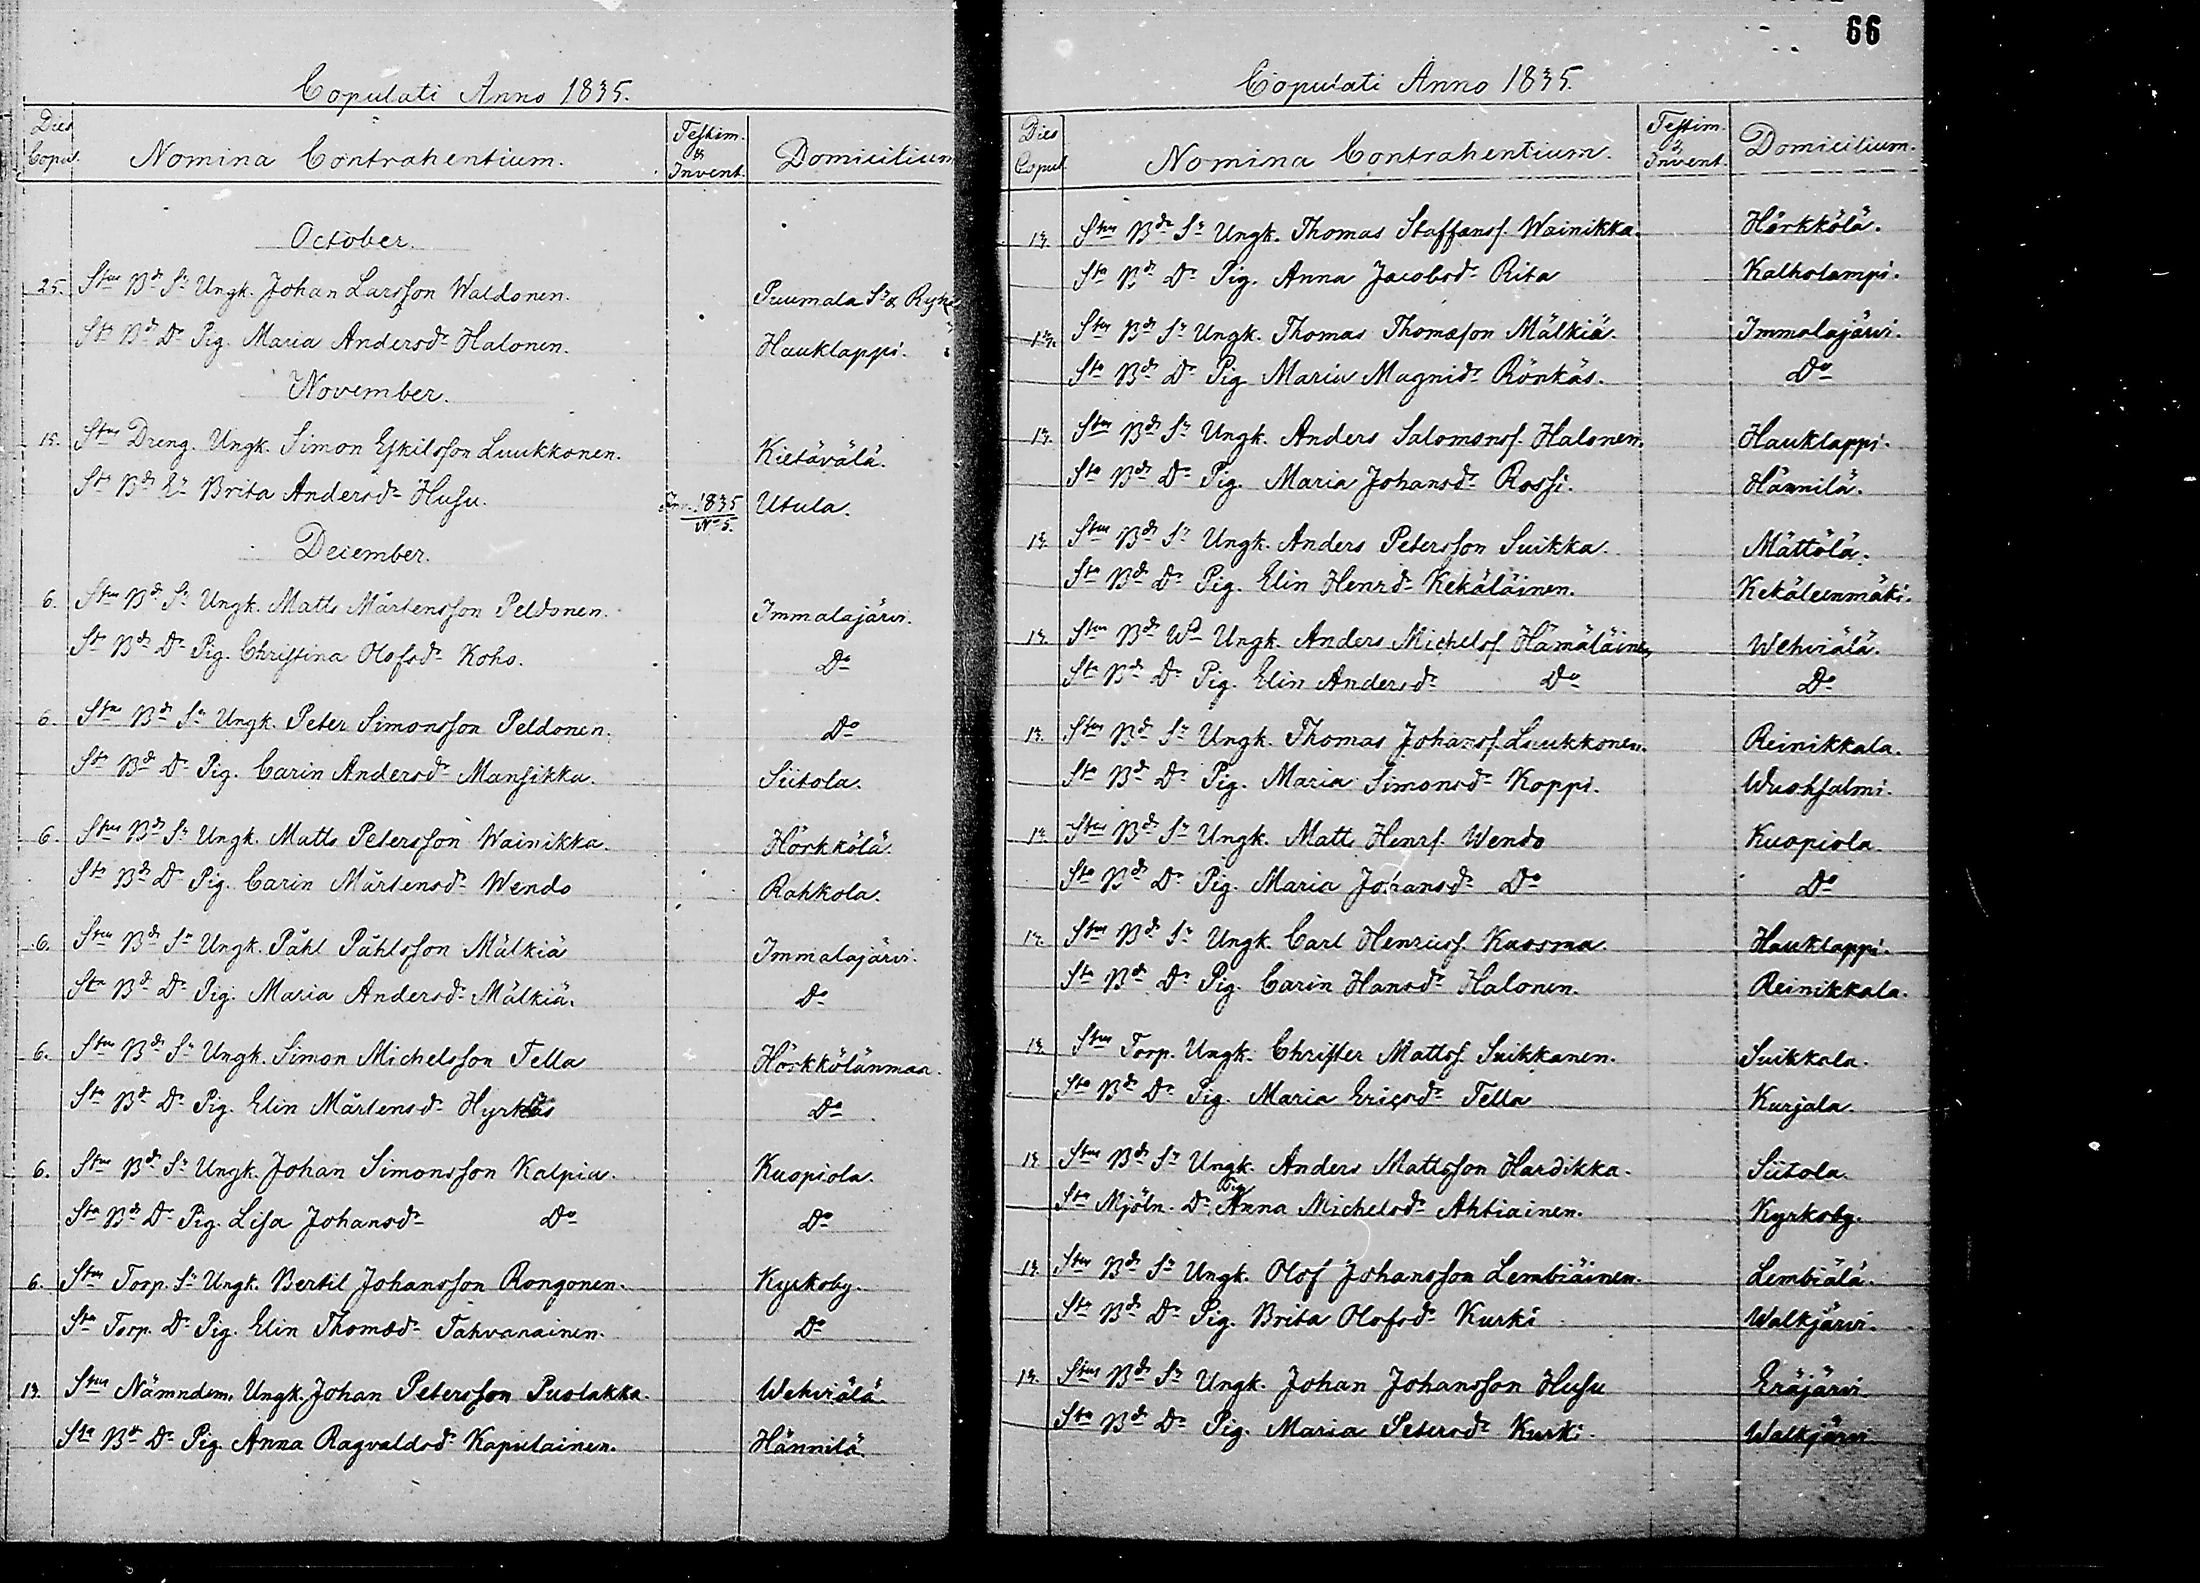 Copulati Anno 1835.
Dies Copul. Nomina Contrahentium. Testim. & Invent. Domicilium
October.
25. Stus Bde Sn Ungk. Johan Larsson Waldonen. Puumala Sn &
Sta Bde Dr Pig. Maria Andersdr Halonen. Hauklappi.
November.
15. Stus Dreng. Ungk. Simon Eskilsson Luukkonen. Kietävälä.
Sta Bde Brita Andersdr Husu. 1835 No 5. Utula.
December.
6. Stus Bde Sn Ungk. Matts Mårtensson Peldonen. Immalajärvi.
Sta Bde Dr Pig. Christina Olofsdr Koho. Do
6. Stus Bde Sn Ungk. Peter Simonsson Peldonen. Do
Sta Bde Dr Pig. Carin Andersdr Mansikka. Siitola.
6. Stus Bde Sn Ungk. Matts Petersson Wainikka. Hörkkölä.
Sta Bde Dr Pig. Carin Mårtensdr Wendo Rahkola.
6. Stus Bde Sn Ungk. Påhl Påhlsson Mälkiä Immalajärvi.
Sta Bde Dr Pig. Maria Andersdr Mälkiä. Do
6. Stus Bde Sn Ungk. Simon Michelsson Tella Hörkkölänmaa.
Sta Bde Dr Pig. Elin Mårtensdr Hyrkäs Do
6. Stus Bde Sn Ungk. Johan Simonsson Kalpia. Kuopiola.
Sta Bde Dr Pig. Lisa Johansdr Do Do
6. Stus Torp. Sn Ungk. Bertil Johansson Rongonen. Kyrkoby.
Sta Torp. Dr Pig. Elin Thomædr Tahvanainen. Do
13. Stus Nämndem. Ungk. Johan Petersson Puolakka. Wehviälä.
Sta Bde Dr Pig. Anna Ragvaldsdr Kapulainen. Hännilä
66
Copulati Anno 1835.
Dies Copul. Nomina Contrahentium. Testim. & Invent. Domicilium.
13. Stus Bde Sn Ungk. Thomas Staffanss. Wainikka. Hörkkölä.
Sta Bde Dr Pig. Anna Jacobsdr Rita Kalholampi.
13. Stus Bde Sn Ungk. Thomas Thomæson Mälkiä. Immalajärvi.
Sta Bde Dr Pig Maria Magnidr Rönkäs. Do
13. Stus Bde Sn Ungk. Anders Salomonss. Halonen. Hauklappi.
Sta Bde Dr Pig. Maria Johansdr Rossi. Hännilä.
13. Stus Bde Sn Ungk. Anders Petersson Suikka. Mättölä.
Sta Bde Dr Pig. Elin Henrdr Kekäläinen. Kekäleenmäki.
13. Stus Bde Ungk. Anders Michelss. Hämäläinen Wehviälä.
Sta Bde Dr Pig. Elin Andersdr Do Do
13. Stus Bde Sn Ungk. Thomas Johanss. Luukkonen. Reinikkala.
Sta Bde Dr Pig. Maria Simonsdr Koppi. Wuohsalmi.
13. Stus Bde Sn Ungk. Matts Henrs. Wendo Kuopiola.
Sta Bde Dr Pig. Maria Johansdr Do Do
13. Stus Bde Sn Ungk. Carl Henrics. Kuosma. Hauklappi.
Sta Bde Dr Pig. Carin Hansdr Halonen. Reinikkala.
13. Stus Torp. Ungk. Christer Mattss. Suikkanen. Suikkala.
Sta Bde Dr Pig. Maria Ericsdr Tella Kurjala.
13 Stus Bde Sn Ungk. Anders Mattsson Hardikka. Siitola.
Sta Mjöln. Dr Pig Anna Michelsdr Ahtiainen. Kyrkoby.
13. Stus Bde Sn Ungk. Olof Johansson Lembiäinen. Lembiälä.
Sta Bde Dr Pig. Brita Olofsdr Kurki Walkjärvi.
13. Stus Bde Sn Ungk. Johan Johansson Husu Eräjärvi
Sta Bde Dr Pig. Maria Petersdr Kurki. Walkjärvi